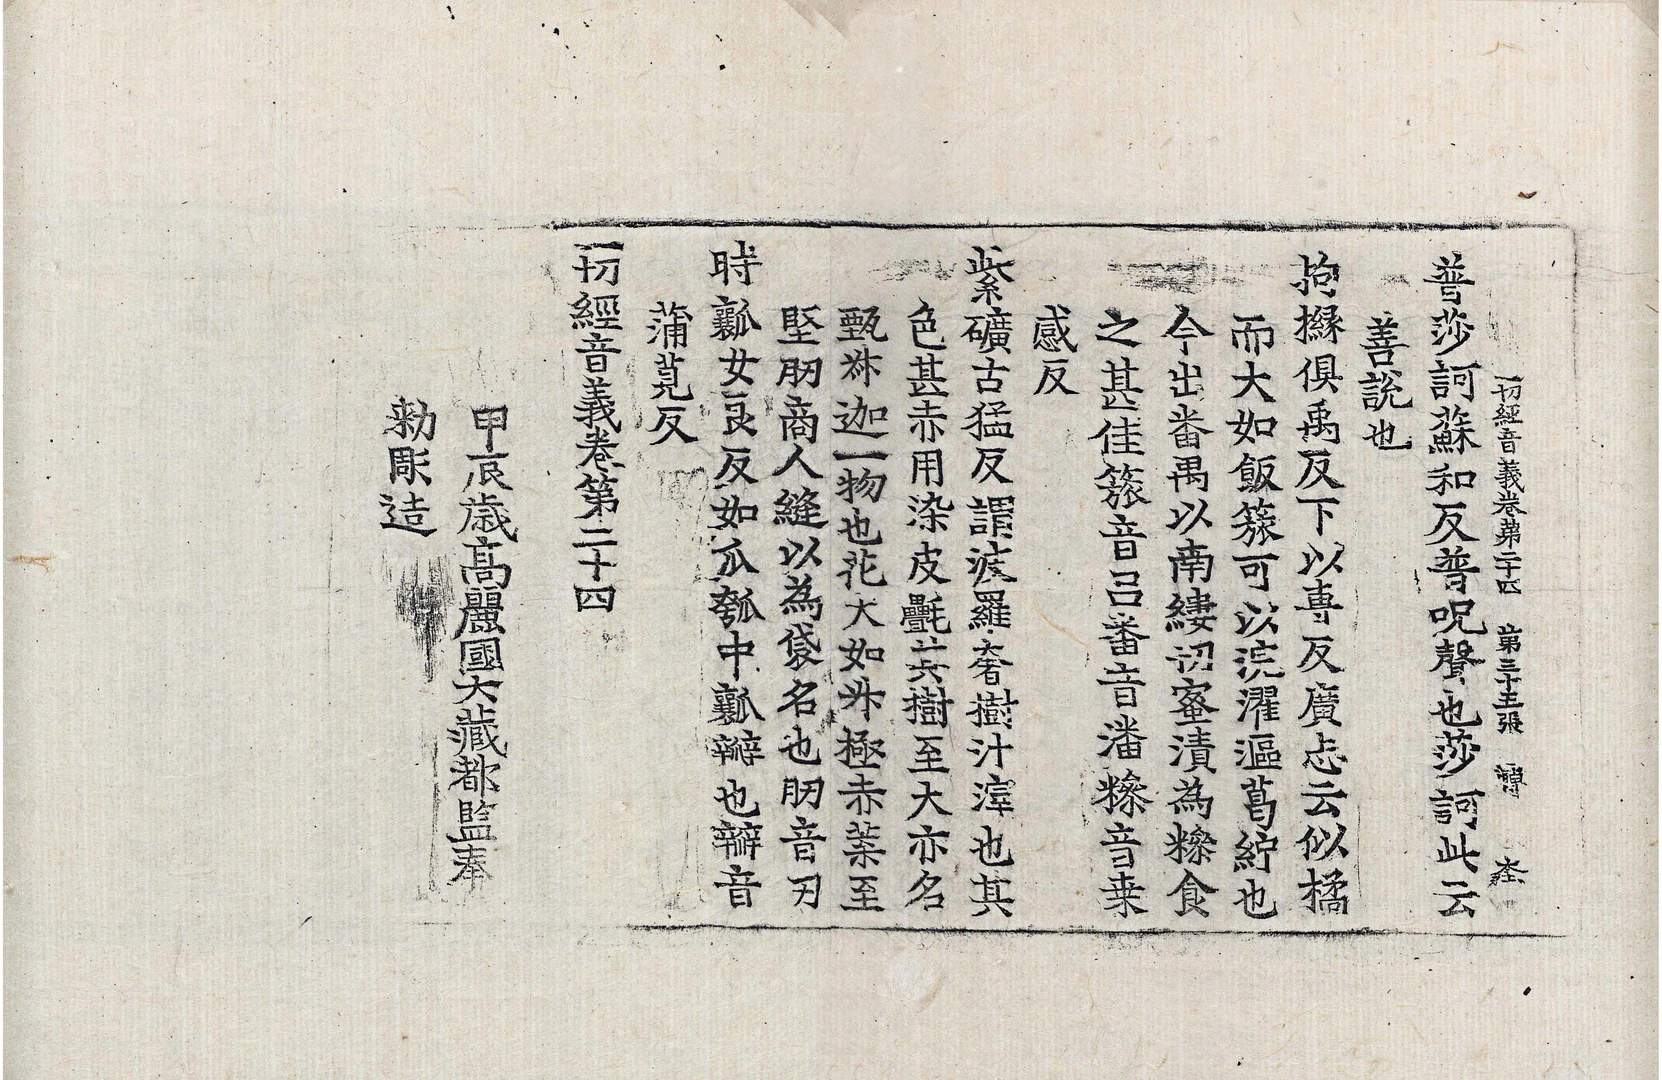 一切經音義卷第二十四 第三十五張
普莎訶蘇和反普呪聲也莎訶此云
善説也
拘攥俱禹反下以專反廣志云似橘
而大如飯簇可以浣濯漚葛紵也
今出番禺以南縷切蜜漬為糝食
之甚佳簇音吕番音潘糝音桒
感反
紫礦古猛反謂波羅奢樹汁滓也其
色甚赤用染皮氎其樹至大亦名
甄叔迦一物也花大如㪷極赤葉至
堅肕商人縫以為袋名也肕音刃
時瓤女良反如瓜瓠中瓤瓣也瓣音
蒲莧反
一切經音義卷第二十四
甲辰歳高麗國大藏都監奉
勅彫造